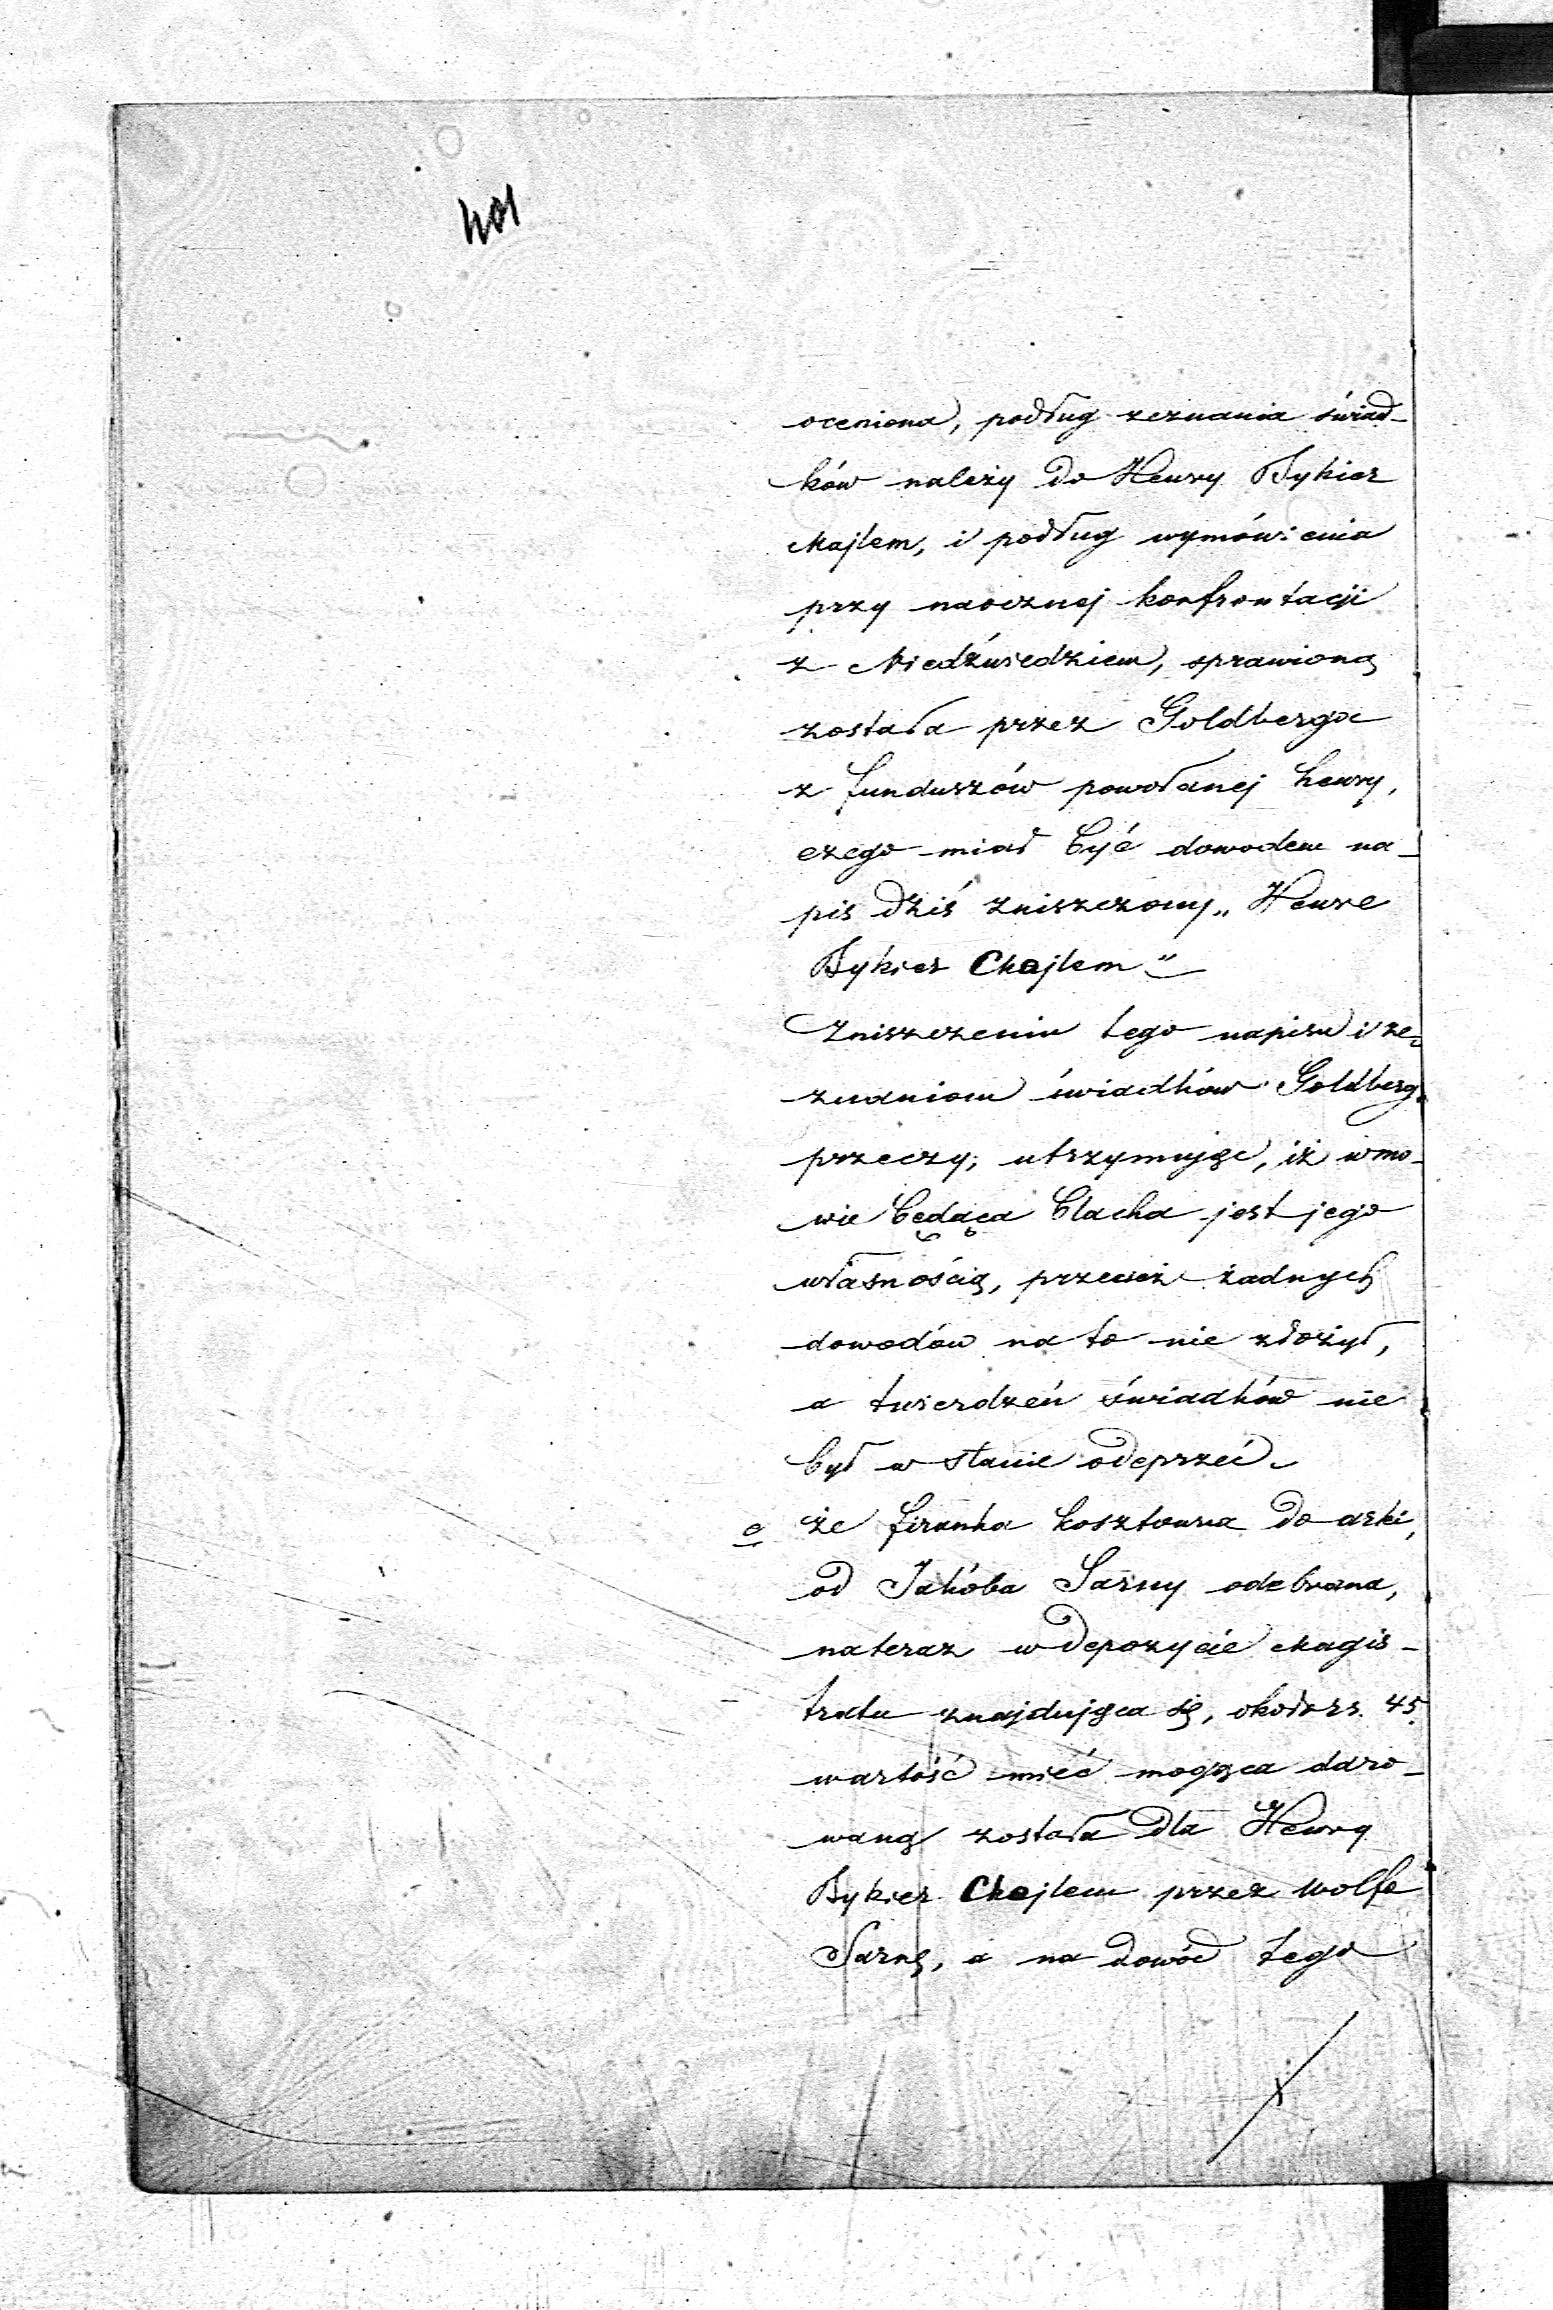 401
oceniona, podług zeznania świad-
ków należy do Hewry Bykier
Majlem, i podług wymówienia
przy naocznej konfrontacji
z Niedźwiedziem, sprawioną
została przez Goldberga
z funduszów powołanej hewry,
czego miał być dowodem na-
pis dziś zniszczony „Hewre
Bykier Chojlem"
Zniszczeniu tego napisu i ze-
znaniom świadków Goldberg
przeczy; utrzymując, iż w mo-
wie będąca blacha jest jego
własnością, przecież żadnych
dowodów na to nie złożył,
a twierdzeń świadków nie
był w stanie odeprzeć.
c że firanka kosztowna do arki,
od Jakóba Sarny odebrana,
na teraz w depozycie Magis-
tratu znajdująca się, około rs. 45
wartość mieć mogąca daro-
waną została dla Hewry
Bykier Chojlem przez Wolfa
Sarnę, a na dowód tego